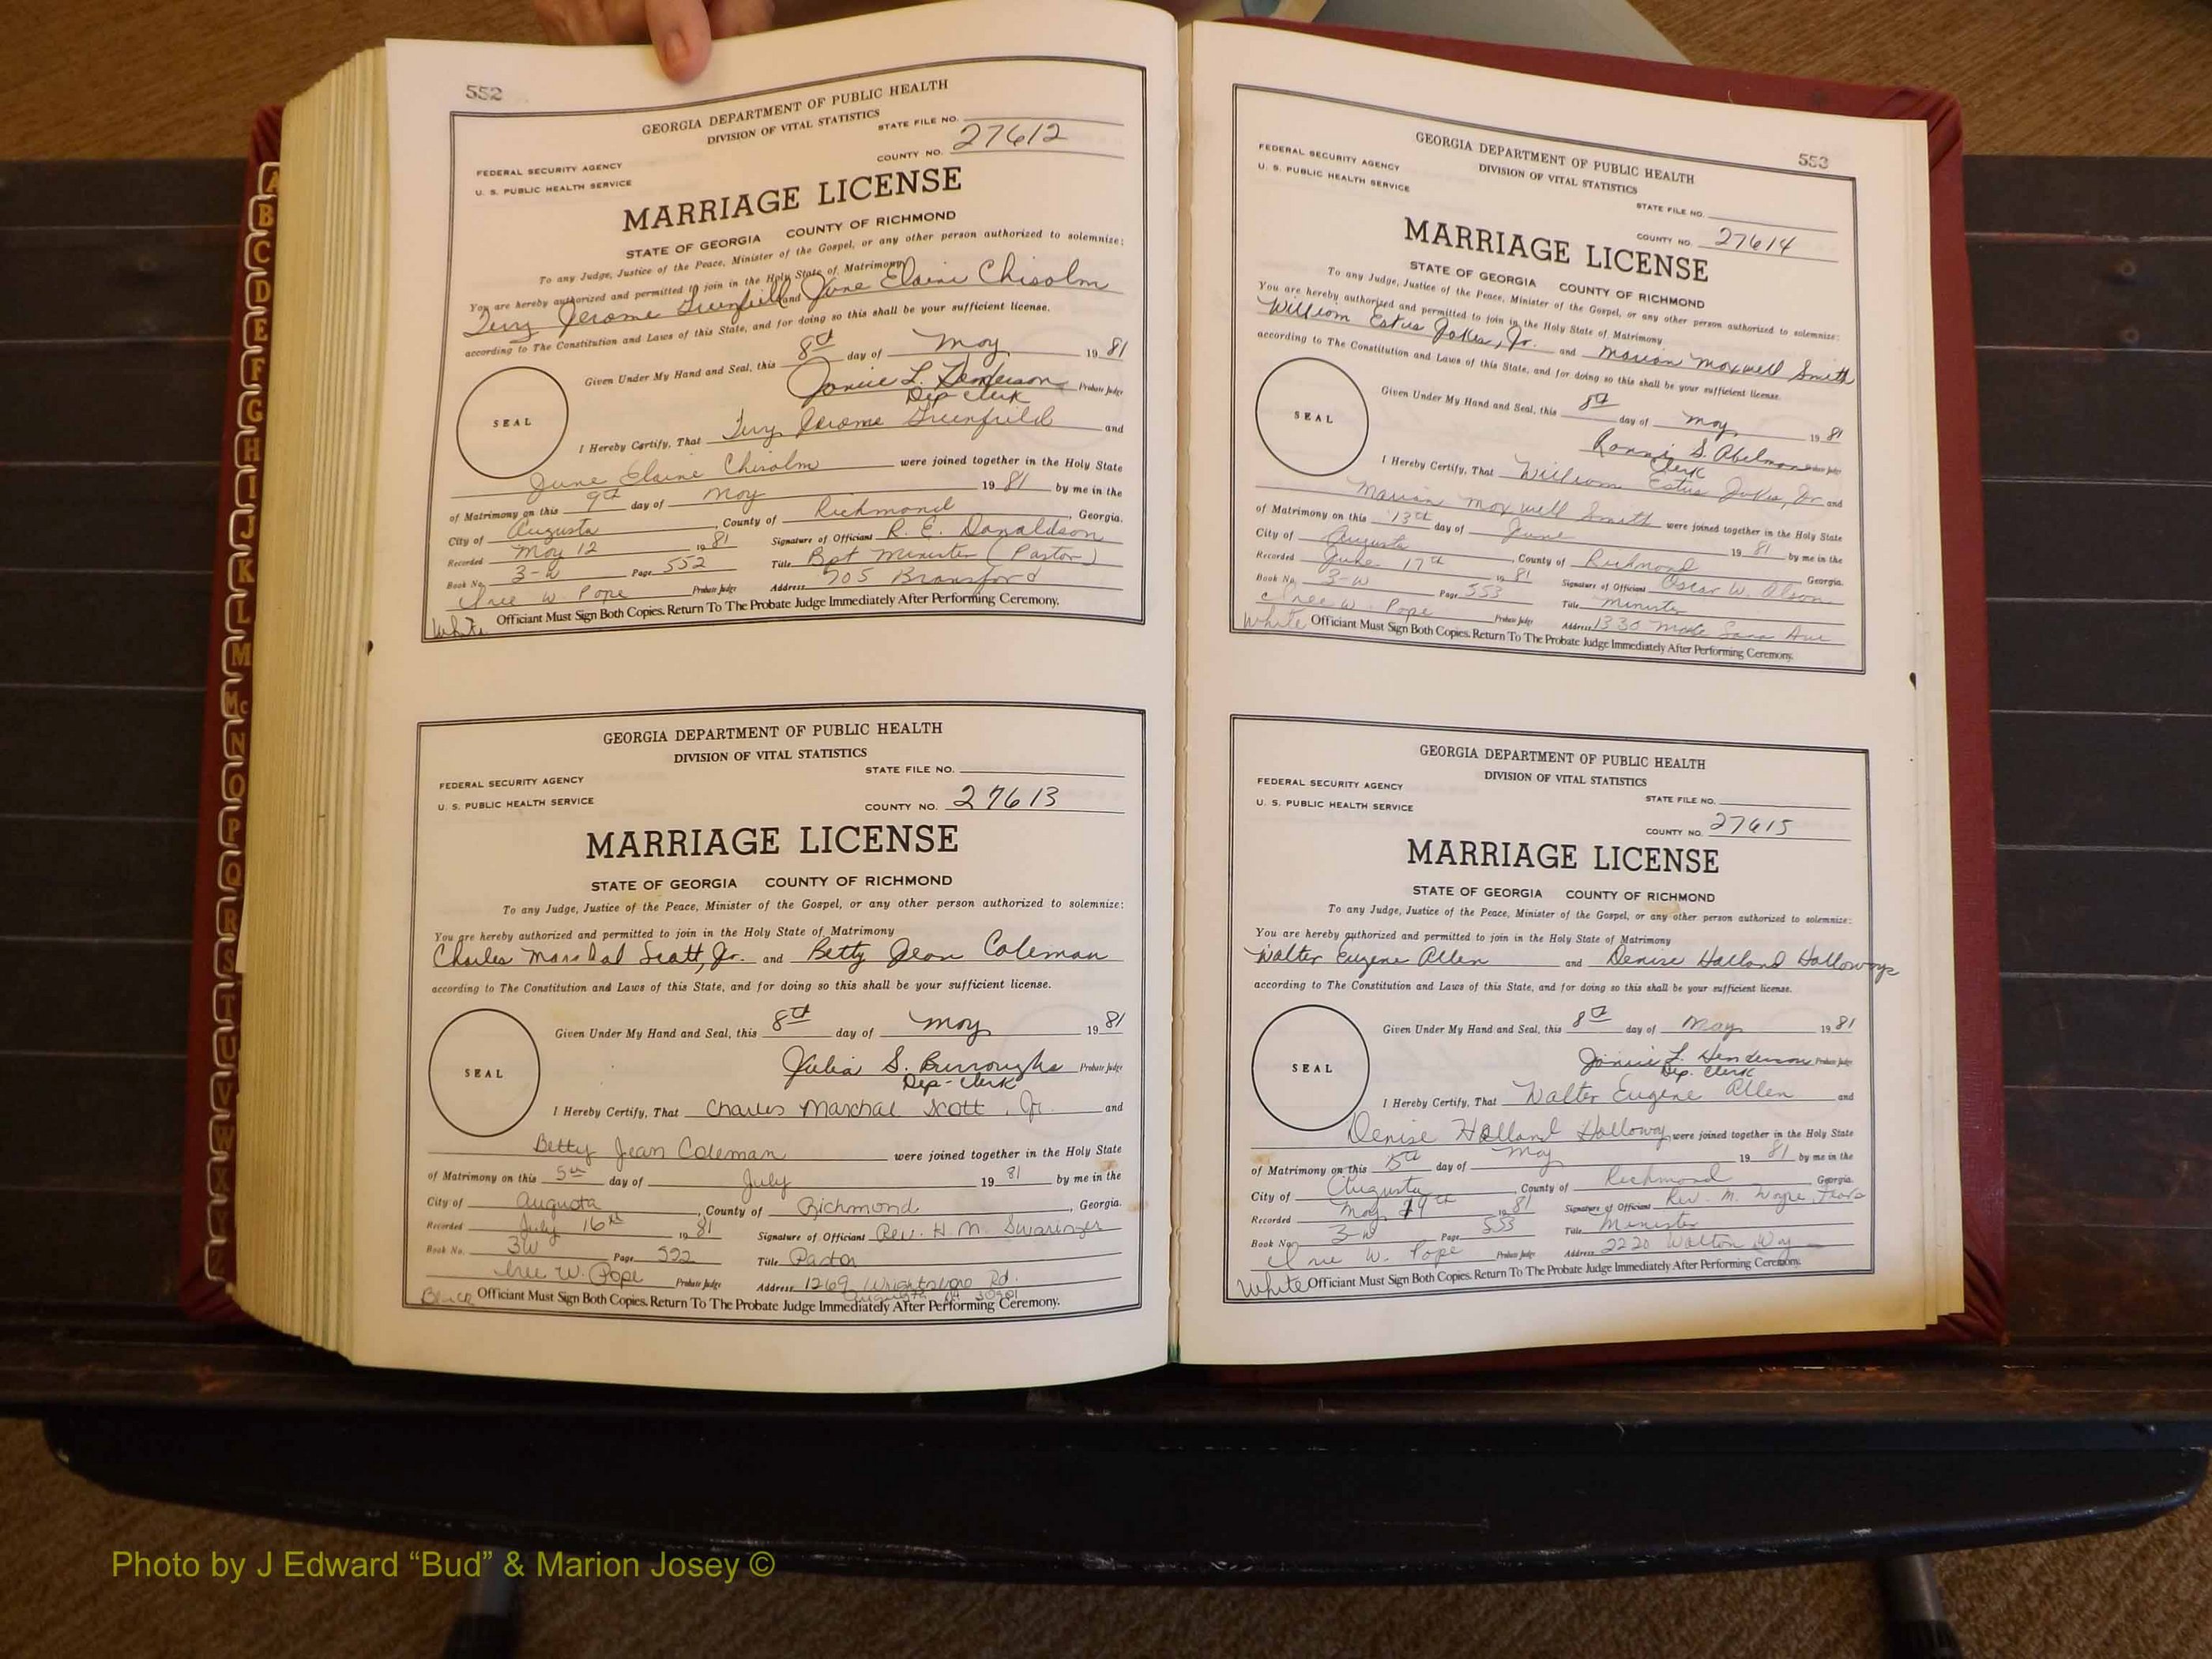 552
GEORGIA DEPARTMENT OF PUBLIC HEALTH
DIVISION OF VITAL STATISTICS
STATE FILE NO.
FEDERAL SECURITY AGENCY
COUNTY NO. 27612
U. S. PUBLIC HEALTH SERVICE
MARRIAGE LICENSE
STATE OF GEORGIA COUNTY OF RICHMOND
To any Judge, Justice of the Peace, Minister of the Gospel, or any other person authorized to solemnize:
You are hereby authorized and permitted to join in the Holy State of Matrimony
Terry Jerome Greenfield and June Elaine Chisolm
according to The Constitution and Laws of this State, and for doing so this shall be your sufficient license.
Given Under My Hand and Seal, this 8th day of May 19 81
Jonnie L. Henderson Probate Judge
Dep Clerk
SEAL
I Hereby Certify, That Terry Jerome Greenfield and
June Elaine Chisolm were joined together in the Holy State
of Matrimony on this 9th day of May 19 81 by me in the
City of Augusta, County of Richmond, Georgia.
Recorded May 12 19 81 Signature of Officiant R. E. Donaldson
Book No. 3-W Page 552 Title Bpt Minister (Pastor)
W. Pope Probate Judge Address 705 Bransford
White Officiant Must Sign Both Copies. Return To The Probate Judge Immediately After Performing Ceremony.
GEORGIA DEPARTMENT OF PUBLIC HEALTH
DIVISION OF VITAL STATISTICS
STATE FILE NO.
FEDERAL SECURITY AGENCY
U. S. PUBLIC HEALTH SERVICE COUNTY NO. 27613
MARRIAGE LICENSE
STATE OF GEORGIA COUNTY OF RICHMOND
To any Judge, Justice of the Peace, Minister of the Gospel, or any other person authorized to solemnize:
You are hereby authorized and permitted to join in the Holy State of Matrimony
Charles Marshal Scott, Jr. and Betty Jean Coleman
according to The Constitution and Laws of this State, and for doing so this shall be your sufficient license.
Given Under My Hand and Seal, this 8th day of May 19 81
Julia S. Burroughs Probate Judge
Dep-Clerk
SEAL
I Hereby Certify, That Charles Marchal Scott, Jr. and
Betty Jean Coleman were joined together in the Holy State
of Matrimony on this 5th day of July 19 81 by me in the
City of Augusta, County of Richmond, Georgia.
Recorded July 16th 19 81 Signature of Officiant Rev. H. M. Swaringer
Book No. 3W Page 552 Title Pastor
W. Pope Probate Judge Address 1269 Wrightsboro Rd.
Augusta, GA 30901
Black Officiant Must Sign Both Copies. Return To The Probate Judge Immediately After Performing Ceremony.
553
GEORGIA DEPARTMENT OF PUBLIC HEALTH
DIVISION OF VITAL STATISTICS
FEDERAL SECURITY AGENCY
U. S. PUBLIC HEALTH SERVICE
STATE FILE NO.
COUNTY NO. 27614
MARRIAGE LICENSE
STATE OF GEORGIA COUNTY OF RICHMOND
To any Judge, Justice of the Peace, Minister of the Gospel, or any other person authorized to solemnize:
You are hereby authorized and permitted to join in the Holy State of Matrimony
William Estus Jokes, Jr. and Marian Maxwell Smith
according to The Constitution and Laws of this State, and for doing so this shall be your sufficient license.
Given Under My Hand and Seal, this 8th day of May 19 81
Ronnie S. Abelman Probate Judge
Clerk
SEAL
I Hereby Certify, That William Estus Jokes, Jr and
Marian Maxwell Smith were joined together in the Holy State
of Matrimony on this 13th day of June 19 81 by me in the
City of Augusta, County of Richmond Georgia.
Recorded June 17th 19 81 Signature of Officiant Oscar W. Olson
Book No. 3-W Page 553 Title Minister
W. Pope Probate Judge Address 1330 Ave
White Officiant Must Sign Both Copies. Return To The Probate Judge Immediately After Performing Ceremony.
GEORGIA DEPARTMENT OF PUBLIC HEALTH
DIVISION OF VITAL STATISTICS
FEDERAL SECURITY AGENCY
STATE FILE NO.
U. S. PUBLIC HEALTH SERVICE
COUNTY NO. 27615
MARRIAGE LICENSE
STATE OF GEORGIA COUNTY OF RICHMOND
To any Judge, Justice of the Peace, Minister of the Gospel, or any other person authorized to solemnize:
You are hereby authorized and permitted to join in the Holy State of Matrimony
Walter Eugene Allen and Denise Holland Holloway
according to The Constitution and Laws of this State, and for doing so this shall be your sufficient license.
Given Under My Hand and Seal, this 8th day of May 19 81
Jonnie L. Henderson Probate Judge
Dep. Clerk
SEAL
I Hereby Certify, That Walter Eugene Allen and
Denise Holland Holloway were joined together in the Holy State
of Matrimony on this 15th day of May 19 81 by me in the
City of Augusta, County of Richmond Georgia.
Recorded May 19th 19 81 Signature of Officiant Rev. M. Wayne
Book No. 3-W Page 553 Title Minister
W. Pope Probate Judge Address 2220 Walton Way
White Officiant Must Sign Both Copies. Return To The Probate Judge Immediately After Performing Ceremony.
A
B
C
D
E
F
G
H
I
J
K
L
M
Mc
N
O
P
Q
R
S
T
U
V
W
X
Y
Z
Photo by J Edward “Bud” & Marion Josey ©